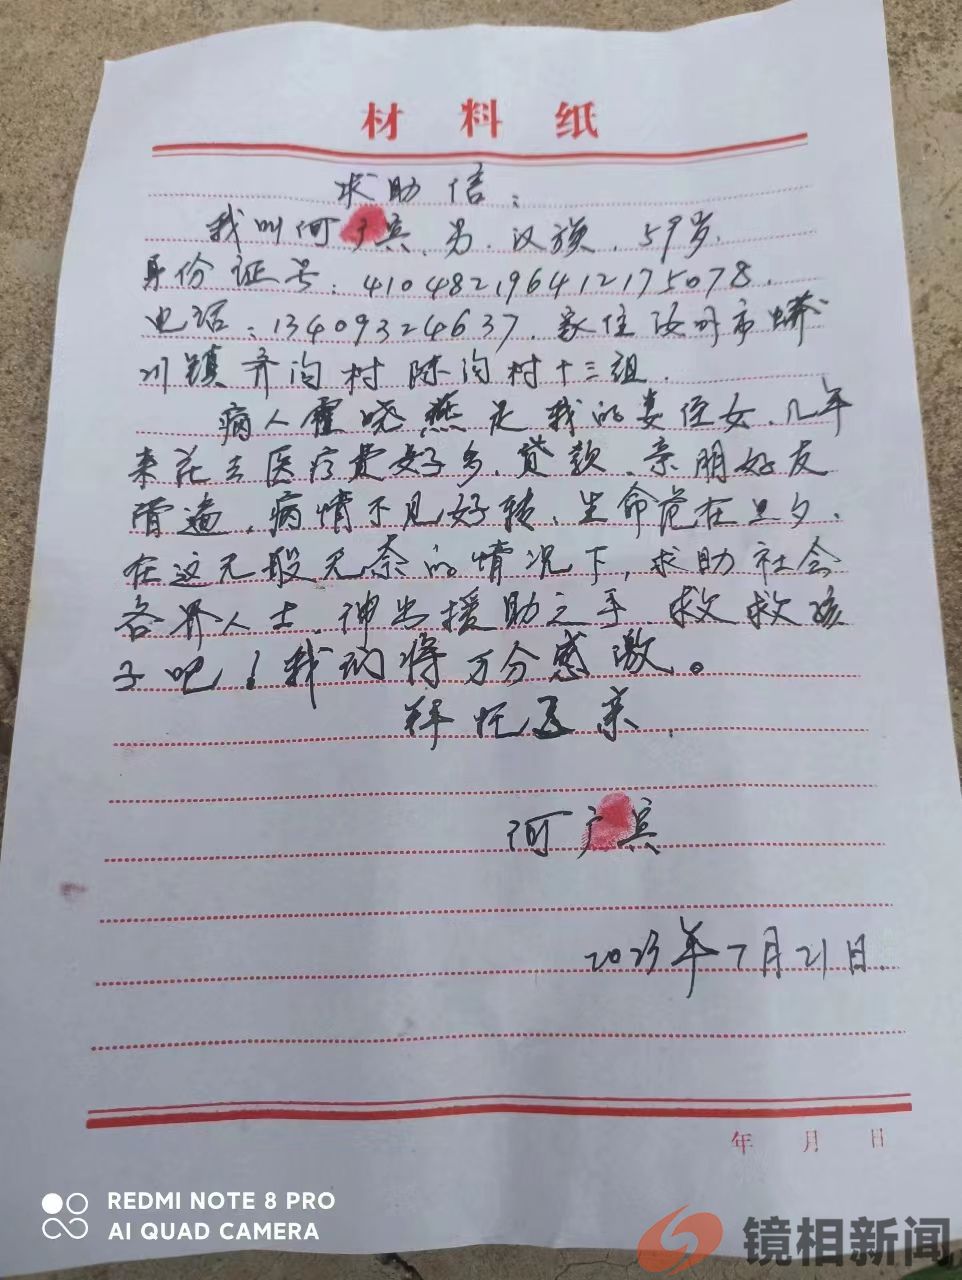 材料纸
求助信：
我叫何广宾、男、汉族、59岁.
身份证号：410482196412175078.
电话：13409324637.家住汝州市蟒
川镇齐沟村陈沟村十三组.
病人霍晓燕是我的妻侄女、几年
来花去医疗费好多、贷款、亲朋好友
借遍、病情不见好转、生命危在旦夕、
在这无般无奈的情况下，求助社会
各界人士、神出援助之手、救救孩
子吧！我们将万分感激。
拜托
何广宾
2023年7月21日.
年 月 日
REDMI NOTE 8 PRO
AI QUAD CAMERA
镜相新闻